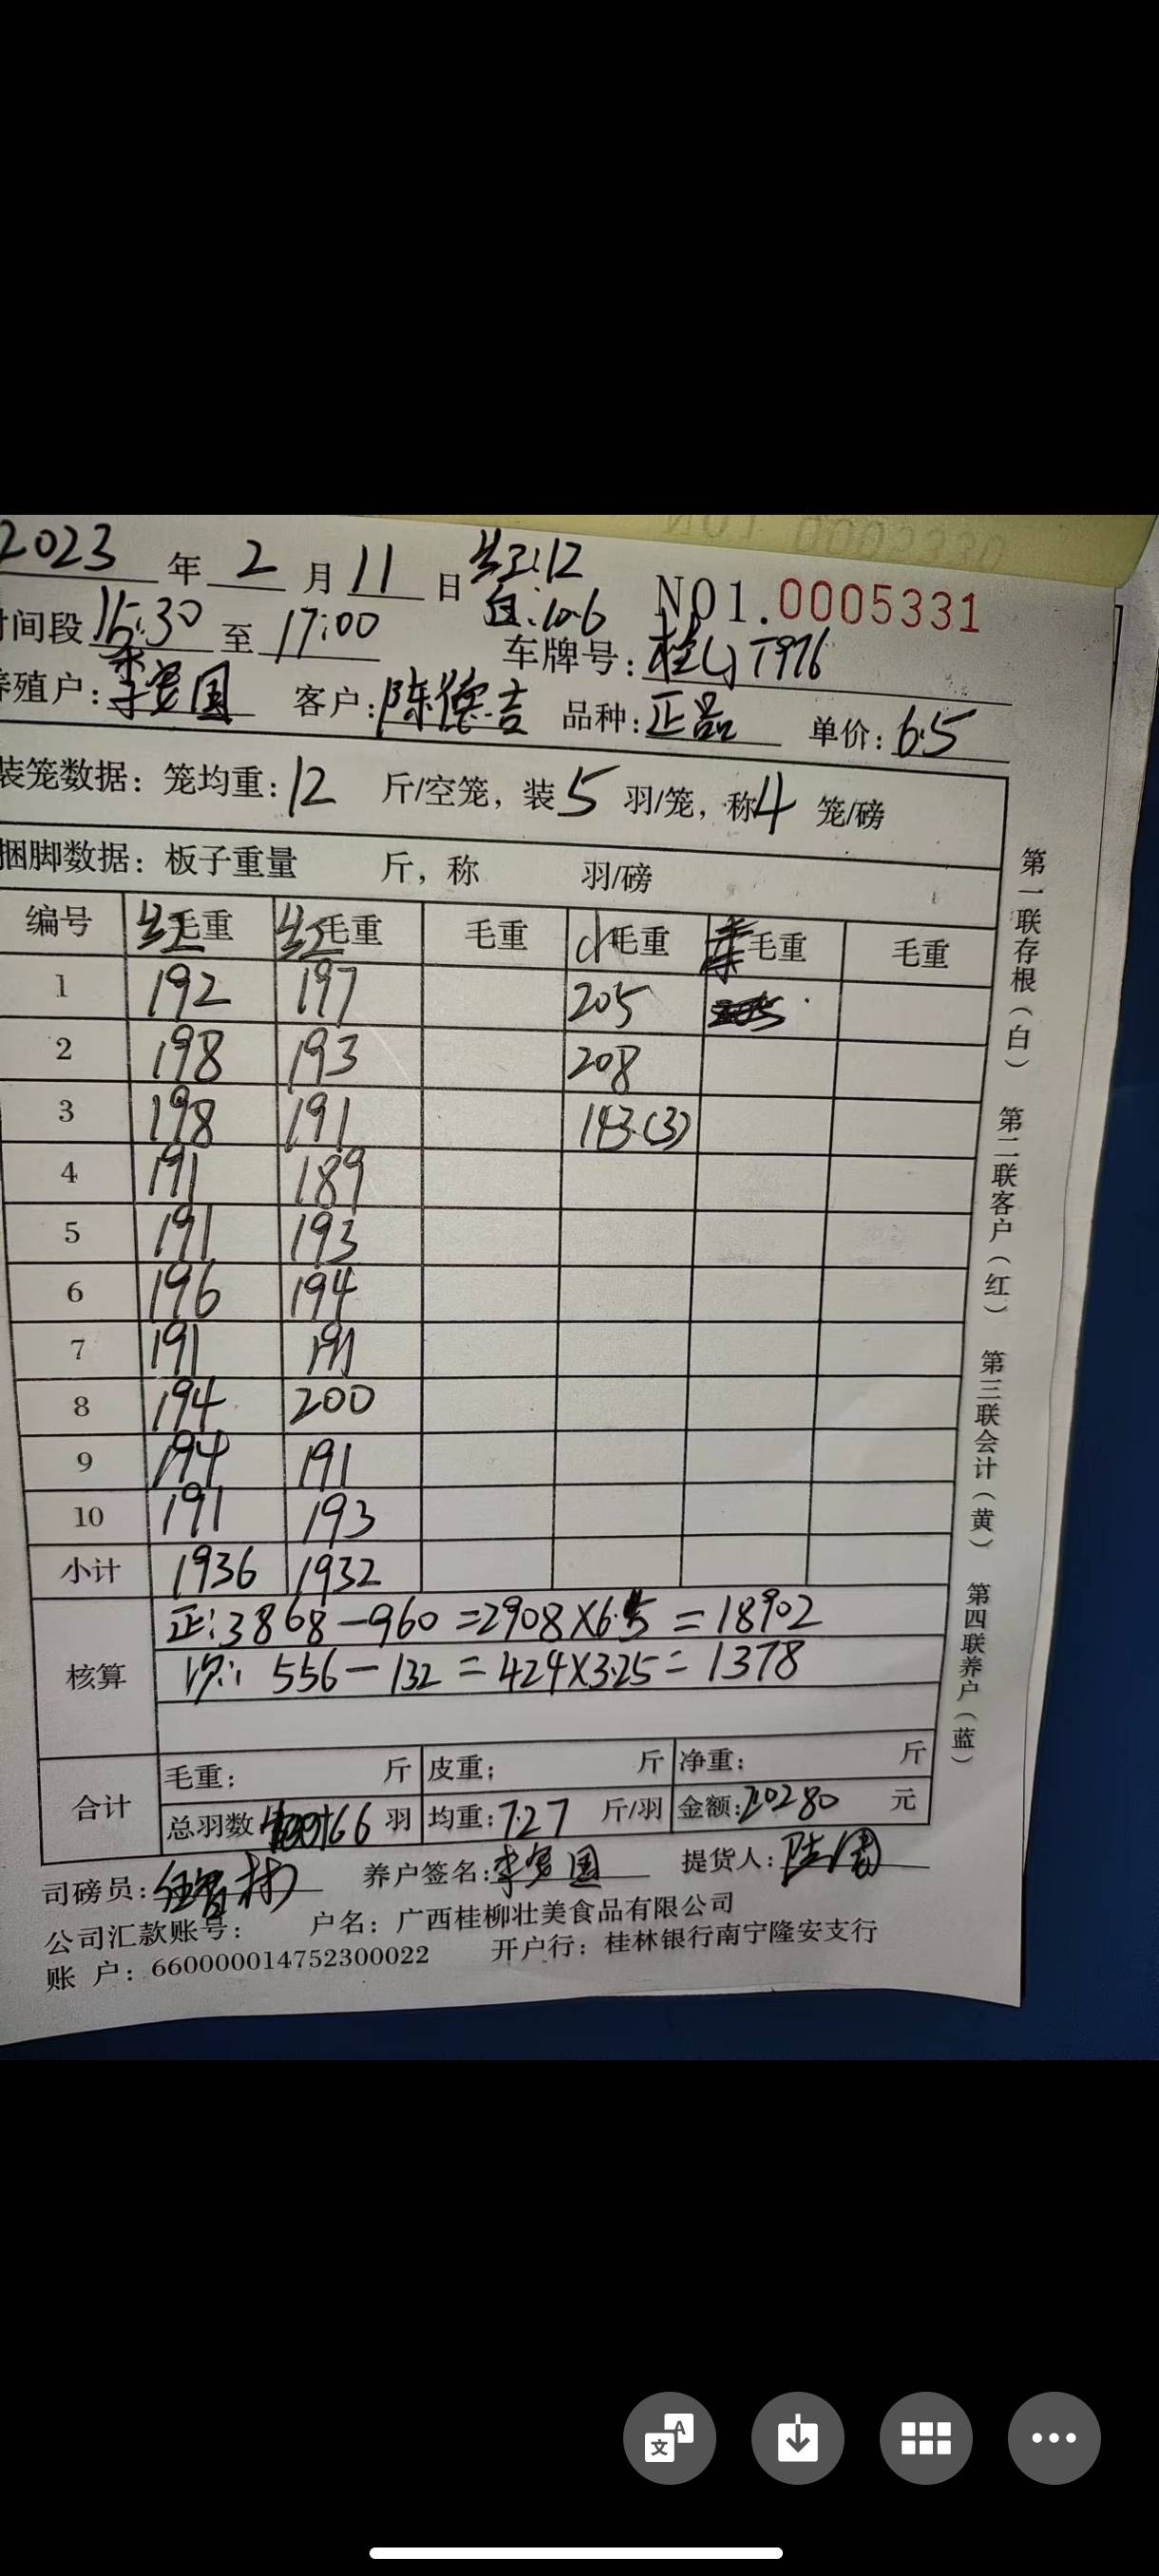 2023 年 2 月 11 日 红:12
NO1.0005331
白:10.6
时间段 15:30 至 17:00 车牌号: 桂 T976
养殖户: 李 国 客户: 陈德吉 品种: 正品 单价: 6.5
装笼数据: 笼均重: 12 斤/空笼, 装 5 羽/笼, 称 4 笼/磅
捆脚数据: 板子重量 斤, 称 羽/磅
编号 红毛重 红毛重 毛重 毛重 毛重 毛重
1 192 197 205
2 198 193 208
3 198 191 143.(3)
4 191 189
5 191 193
6 196 194
7 191 191
8 194 200
9 194 191
10 191 193
小计 1936 1932
核算 正: 3868-960=2908×6.5=18902
次: 556-132=424×3.25=1378
合计 毛重: 斤 皮重: 斤 净重: 斤
总羽数 400+66 羽 均重: 7.27 斤/羽 金额: 20280 元
司磅员: 养户签名: 李 国 提货人: 陆
公司汇款账号: 户名: 广西桂柳壮美食品有限公司
账 户: 660000014752300022 开户行: 桂林银行南宁隆安支行
第一联存根(白) 第二联客户(红) 第三联会计(黄) 第四联养户(蓝)